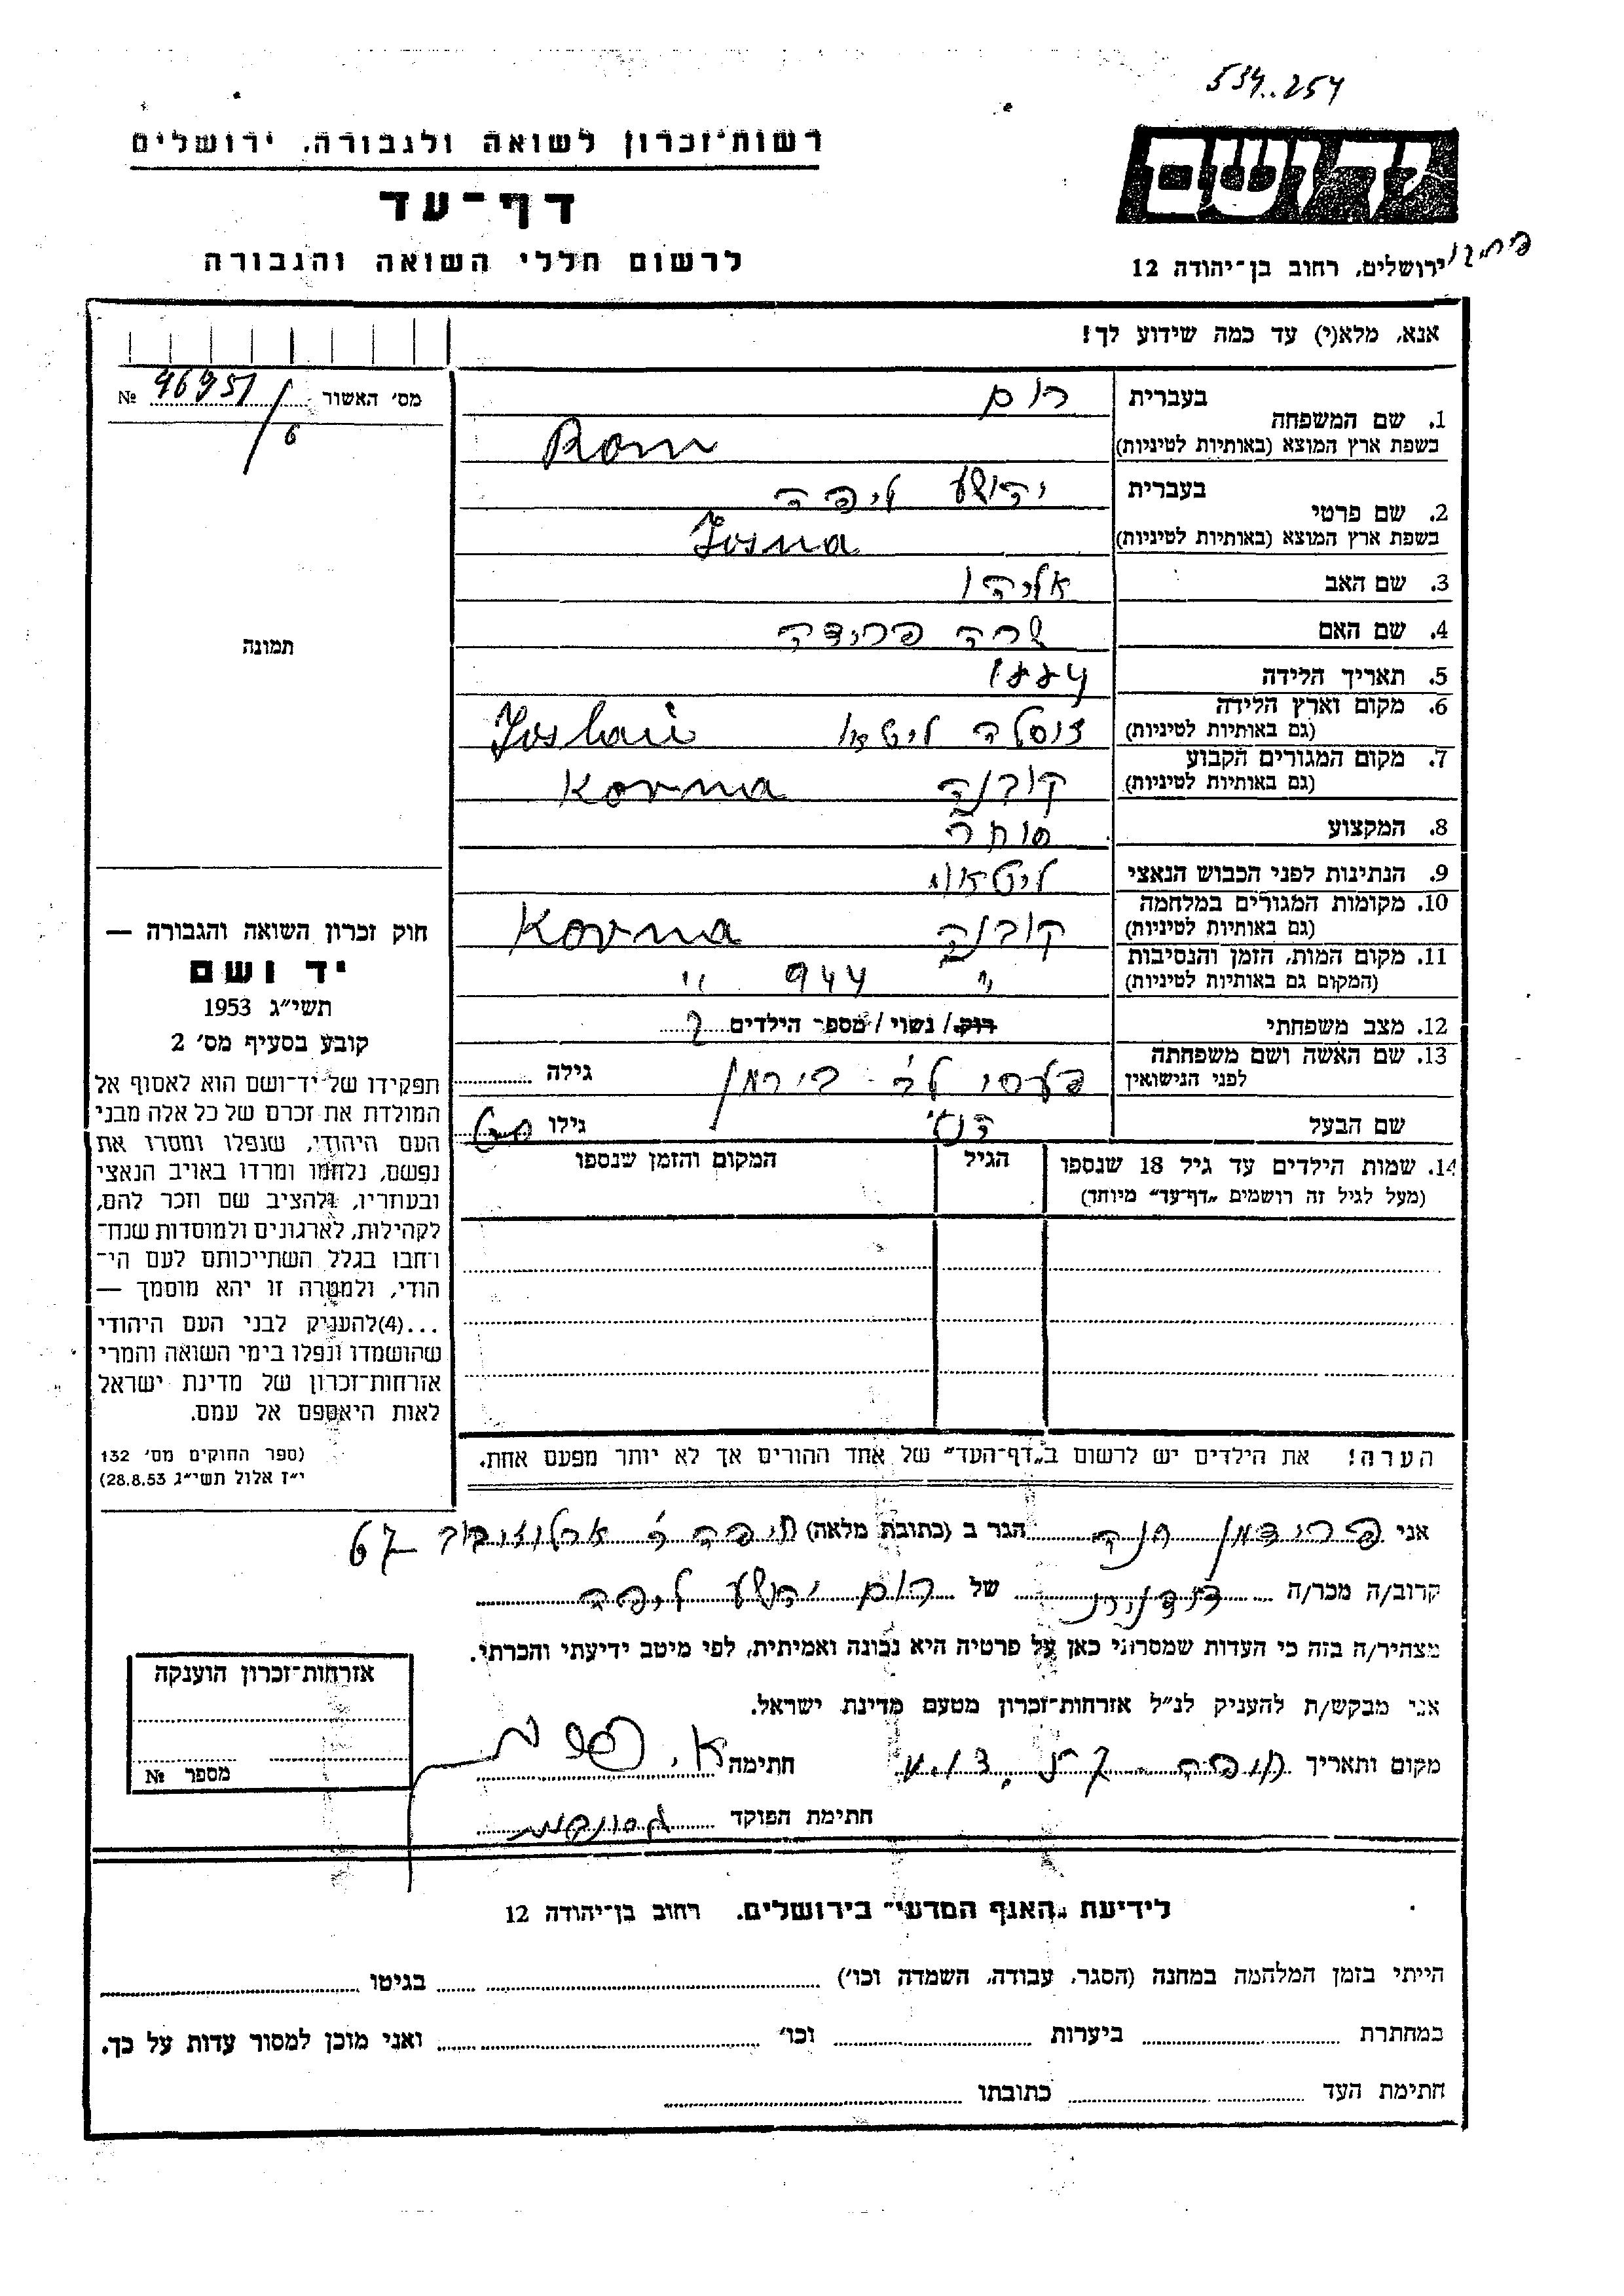 534..254
רשות־זכרון לשואה ולגבורה, ירושלים
ידושם
דף־עד
ירושלים, רחוב בן־יהודה 12
לרשום חללי השואה והגבורה
אנא, מלא(י) עד כמה שידוע לך!
מס׳ האשור 46951 №
6
1. שם המשפחה
בעברית רום
בשפת ארץ המוצא (באותיות לטיניות) Rom
2. שם פרטי
בעברית יהושע ליפה
בשפת ארץ המוצא (באותיות לטיניות) Josua
3. שם האב אליהו
4. שם האם שרה פרידה
5. תאריך הלידה 1884
6. מקום וארץ הלידה
(גם באותיות לטיניות) ליטא Joslai
7. מקום המגורים הקבוע
(גם באותיות לטיניות) קובנה Kovna
8. המקצוע סוחר
9. הנתינות לפני הכבוש הנאצי ליטאית
10. מקומות המגורים במלחמה
(גם באותיות לטיניות) קובנה Kovna
11. מקום המות, הזמן והנסיבות
(המקום גם באותיות לטיניות) " 944 "
12. מצב משפחתי רוק / נשוי / מספר הילדים 2
13. שם האשה ושם משפחתה
לפני הנישואין גילה
שם הבעל גילו
14. שמות הילדים עד גיל 18 שנספו
(מעל לגיל זה רושמים „דף־עד" מיוחד)
הגיל
המקום והזמן שנספו
תמונה
חוק זכרון השואה והגבורה —
יד ושם
תשי״ג 1953
קובע בסעיף מס׳ 2
תפקידו של יד־ושם הוא לאסוף אל
המולדת את זכרם של כל אלה מבני
העם היהודי, שנפלו ומסרו את
נפשם, נלחמו ומרדו באויב הנאצי
ובעוזריו, ולהציב שם וזכר להם,
לקהילות, לארגונים ולמוסדות שנח־
רחבו בגלל השתייכותם לעם הי־
הודי, ולמטרה זו יהא מוסמך —
...(4)להעניק לבני העם היהודי
שהושמדו ונפלו בימי השואה והמרי
אזרחות־זכרון של מדינת ישראל
לאות היאספם אל עמם.
(ספר החוקים מס׳ 132
י״ז אלול תשי״ג 28.8.53)
הערה! את הילדים יש לרשום ב„דף־העד" של אחד ההורים אך לא יותר מפעם אחת.
אני פרידמן חנה הגר ב (כתובת מלאה) חיפה רח׳ ארלוזורוב 67
קרוב/ה מכר/ה של רום יהושע ליפה
מצהיר/ה בזה כי העדות שמסרתי כאן על פרטיה היא נכונה ואמיתית, לפי מיטב ידיעתי והכרתי.
אני מבקש/ת להעניק לנ״ל אזרחות־זכרון מטעם מדינת ישראל.
מקום ותאריך חיפה חתימה
חתימת הפוקד
אזרחות־זכרון הוענקה
מספר №
לידיעת „האגף המדעי" בירושלים. רחוב בן־יהודה 12
הייתי בזמן המלחמה במחנה (הסגר, עבודה, השמדה וכו׳) בגיטו
במחתרת ביערות וכו׳ ואני מוכן למסור עדות על כך.
חתימת העד כתובתו